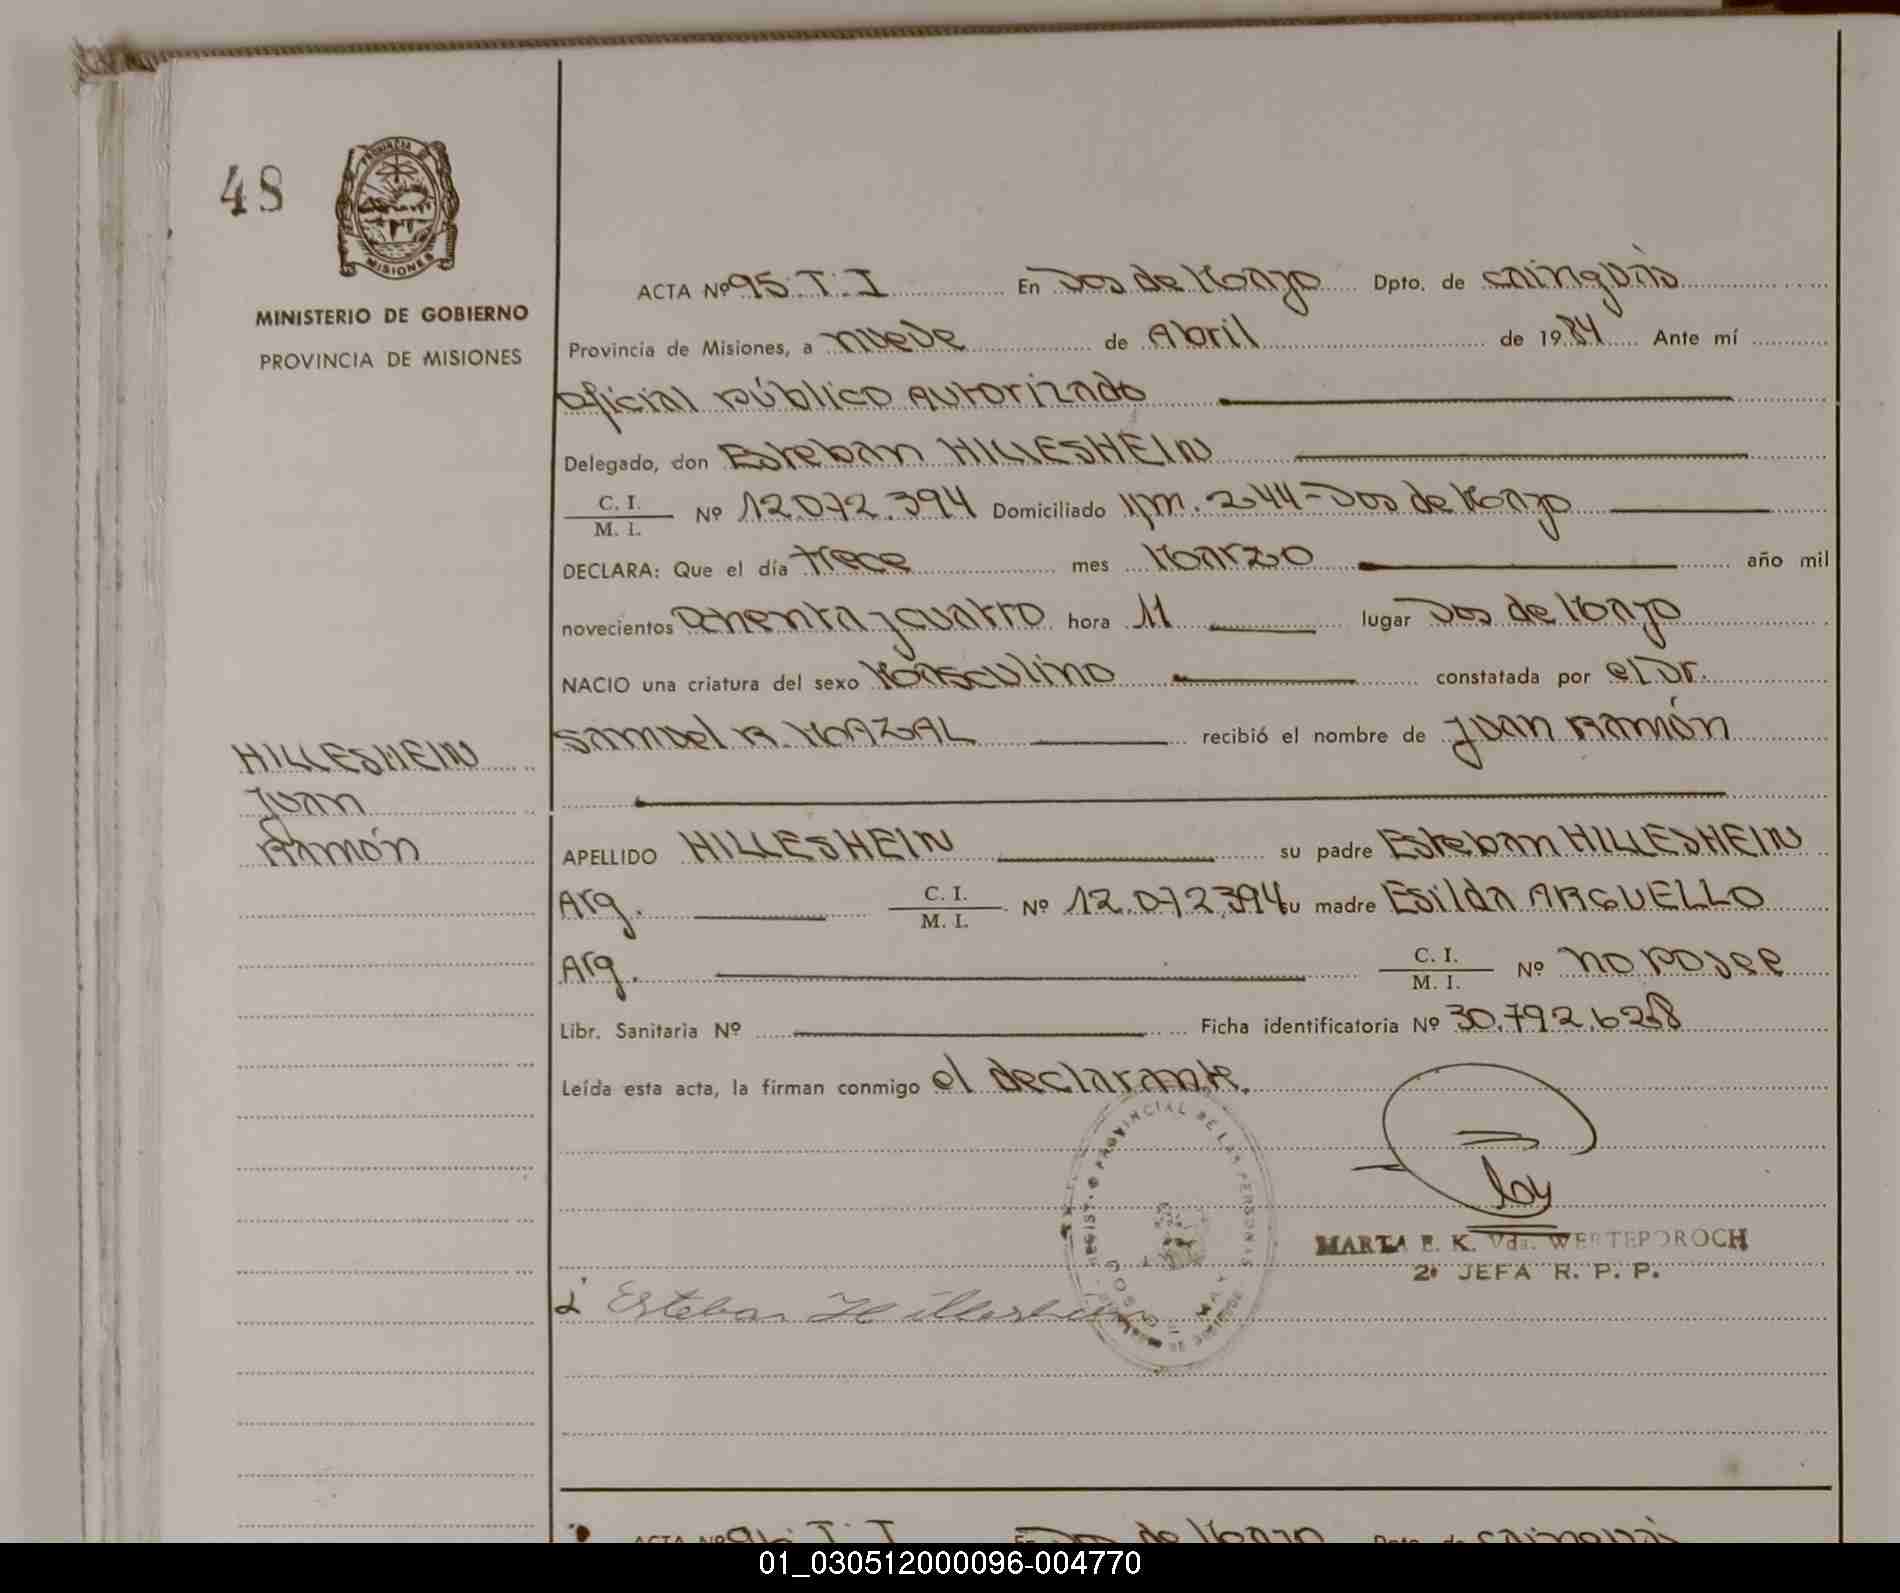 48
PROVINCIA DE
MISIONES
MINISTERIO DE GOBIERNO
PROVINCIA DE MISIONES
HILLESHEIN
Juan
Ramón
ACTA Nº 95. T. I En Dos de Mayo Dpto. de Cainguás
Provincia de Misiones, a nueve de Abril de 1984 Ante mí
oficial público autorizado
Delegado, don Esteban HILLESHEIN
C. I.
M. I. Nº 12.072.394 Domiciliado Km. 244-Dos de Mayo
DECLARA: Que el día trece mes Marzo año mil
novecientos ochenta y cuatro hora 11 lugar Dos de Mayo
NACIO una criatura del sexo Masculino constatada por el Dr.
Samuel R. MAZAL recibió el nombre de Juan Ramón
APELLIDO HILLESHEIN su padre Esteban HILLESHEIN
Arg. C. I.
M. I. Nº 12.072.394 su madre Esilda ARGUELLO
Arg. C. I.
M. I. Nº no posee
Libr. Sanitaria Nº Ficha identificatoria Nº 30.792.628
Leída esta acta, la firman conmigo el declarante.
PROVINCIAL DE LAS PERSONAS
MARTA E. K. Vda. WERTEPOROCH
2ª JEFA R. P. P.
Esteban Hilleshein
ACTA Nº 96. T. I En Dos de Mayo Dpto. de Cainguás
01_030512000096-004770